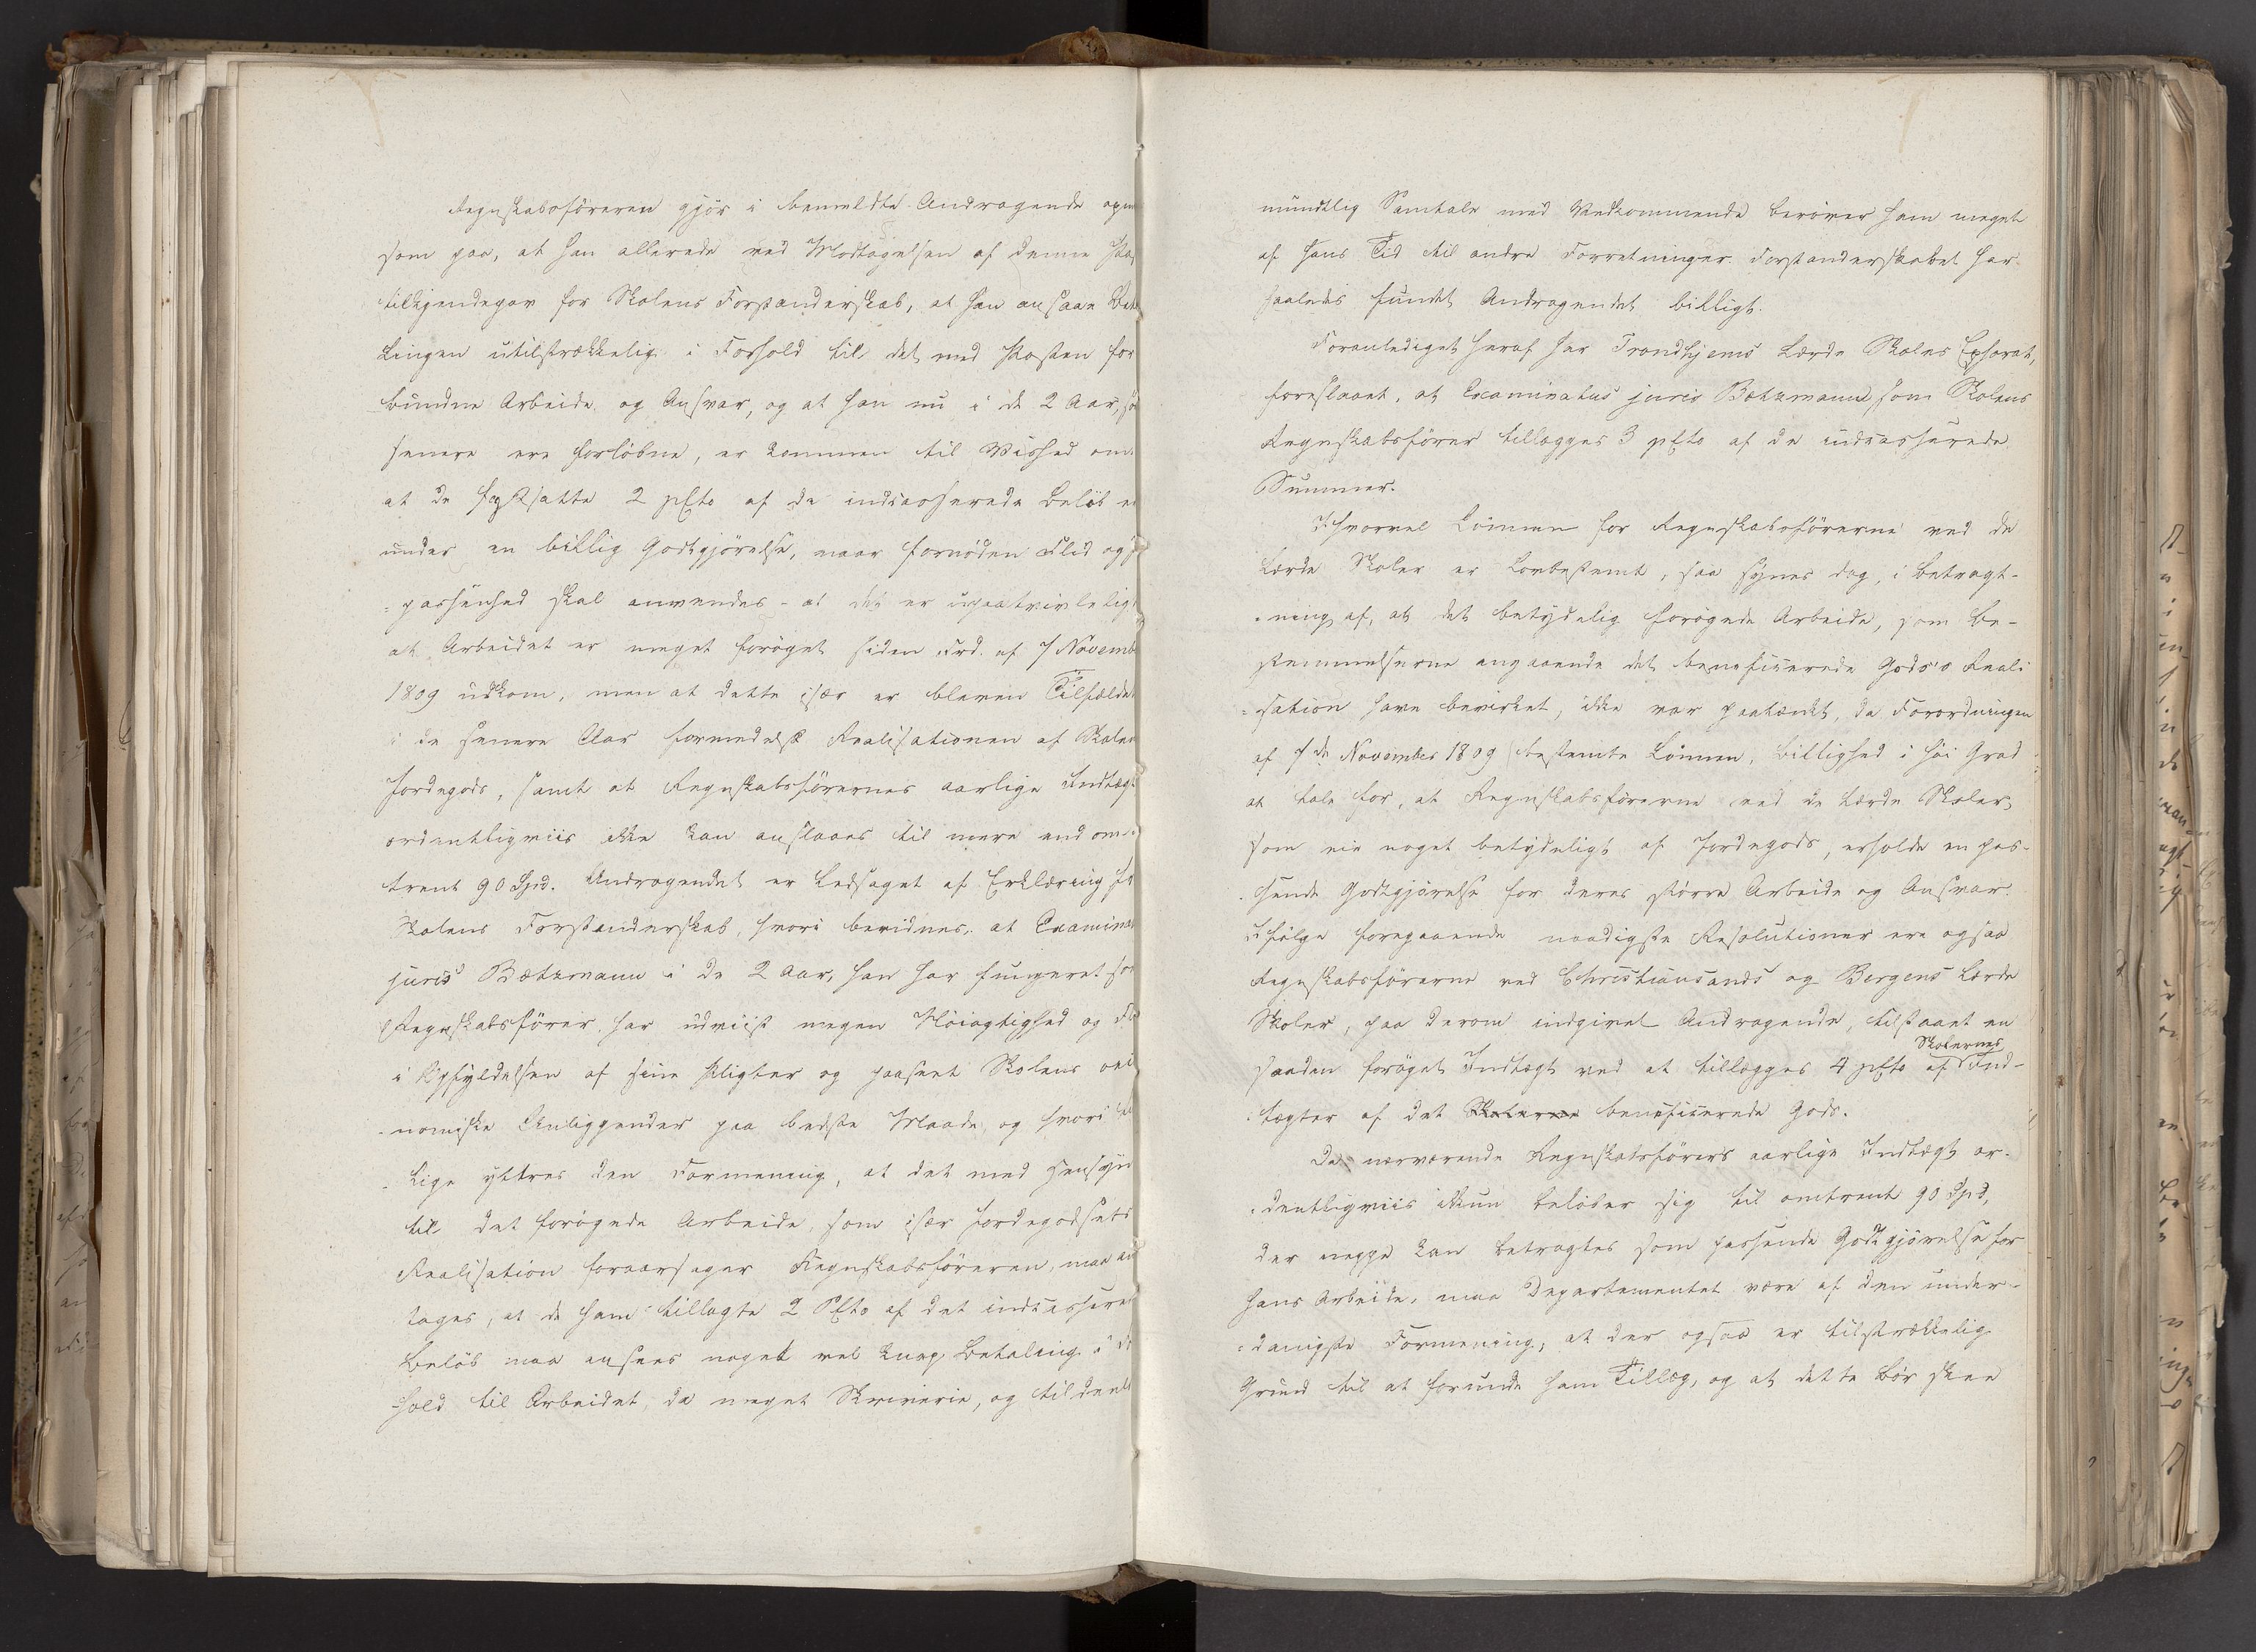 Regnskabsføreren gjør i bemeldte Andragende opm
som paa, at han allerede ved Modtagelsen af denne Pos
tilkjendegav for Skolens Forstanderskab, at han ansaae Beta
lingen utilstrækkelig i Forhold til det med Posten for
bundne Arbeide og Ansvar, og at han nu i de 2 Aar, so
senere ere forløbne, er kommen til Vished om
at de fastsatte 2 pCto af de indcasserede Beløb ei
under en billig Godtgjørelse, naar fornøden Flid og
=passenhed skal anvendes - at det er upaatvivleligt
at Arbeidet er meget forøget siden Frd. af 7 Novemb
1809 udkom, men at dette især er bleven Tilfældet
i de senere Aar formedelst Realisationen af Skolen
Jordegods, samt at Regnskabsførernes aarlige Indtægt
ordentligviis ikke kan anslaaes til mere end om-
trent 90 Spd. Andragendet er ledsaget af Erklæring fr
Skolens Forstanderskab, hvori bevidnes, at Examinat
juris Bætzmann i de 2 Aar, han har fungeret so
Regnskabsfører har udviist megen Nøiagtighed og Fl
i Opfyldelsen af sine Pligter og paaseet Skolens oec
-nomiske Anliggender paa bedste Maade, og hvori
-lige yttres den Formening, at det med Hensyn
til det forøgede Arbeide, som især Jordegodsets
Realisation foraarsager Regnskabsføreren, maa an
tages, at de ham tillagte 2 PCto af det indcassered
Beløb maa ansees noget vel knap Betaling i
-hold til Arbeidet, da meget Skriverie, og tildeels
mundtlig Samtale med Vedkommende berøver ham meget
af hans Tid til andre Forretninger. Forstanderskabet har
saaledes fundet Andragendet billigt.
Foranlediget heraf har Trondhjems Lærde Skoles Ephorat,
foreslaaet, at Examinatus juris Bætzmann som Skolens
Regnskabsfører tillægges 3 pCto af de indcasserede
Summer.
Ihvorvel Lønnen for Regnskabsførerne ved de
Lærde Skoler er Lovbestemt, saa synes dog, i Betragt-
-ning af, at det betydelig forøgede Arbeide, som Be-
stemmelserne angaaende det beneficerede Gods's Reali
=sation have bevirket, ikke var paatænkt, da Forordningen
af 7de November 1809 bestemte Lønnen, Billighed i høi Grad
at tale for, at Regnskabsførerne ved de Lærde Skoler,
som eie noget betydeligt af Jordegods, erholde en pas-
-sende Godtgjørelse for deres større Arbeide og Ansvar.
Ifølge foregaaende naadigste Resolutioner ere ogsaa
Regnskabsførerne ved Christiansands og Bergens Lærde
Skoler, paa derom indgivet Andragende, tilstaaet en
saadan forøget Indtægt ved at tillægges 4 pCto af Skolernes Ind-
-tægter af det Skolerne beneficerede Gods.
Da nærværende Regnskabsførers aarlige Indtægt or-
-dentligviis ikkun beløber sig til omtrent 90 Spd,
der neppe kan betragtes som passende Godtgjørelse for
hans Arbeide, maa Departementet være af den under-
=danigste Formening, at der ogsaa er tilstrækkelig
Grund til at forunde ham Tillæg, og at dette bør skee